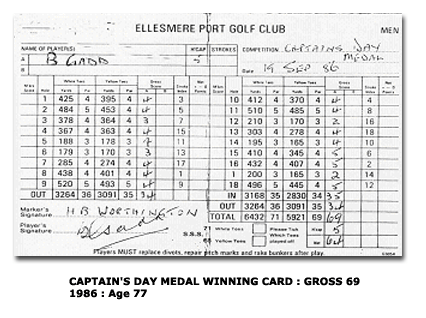 ELLESMERE PORT GOLF CLUB
MEN
NAME OF PLAYER(S) H'CAP STROKES COMPETITION CAPTAINS DAY MEDAL
A B GADD 5
B Date 19 SEP 86
Hole White Tees Par Yellow Tees Par Gross Score A B Stroke Index
1 425 4 395 4 4 3
2 484 4 453 4 4 5
3 378 4 364 4 3 7
4 367 4 363 4 4 15
5 188 3 178 3 11
6 179 3 170 3 3 13
7 285 4 274 4 4 17
8 438 4 401 4 4 1
9 520 5 493 5 4 9
OUT 3264 36 3091 35 34
10 412 4 370 4 4 4
11 510 5 485 5 4 8
12 210 3 170 3 2 16
13 303 4 278 4 4 18
14 195 3 165 3 4 10
15 410 4 345 4 5 6
16 432 4 407 4 5 2
200 3 165 3 2 14
18 496 5 445 5 12
IN 3168 35 2830 34 35
OUT 3264 36 3091 35 34
TOTAL 6432 71 5921 69 69
Marker's Signature H B WORTHINGTON
Player's Signature
S.S.S. 71 White Tees Please Tick Hcap 5
68 Yellow Tees played off Net 64
Players MUST replace divots, repair pitch marks and rake bunkers after play.
CAPTAIN'S DAY MEDAL WINNING CARD : GROSS 69
1986 : Age 77